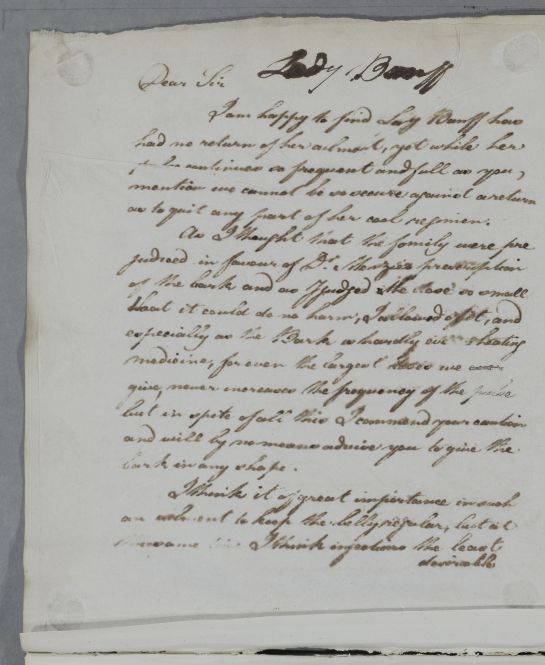 Lady Banff
Dear Sir
I am happy to find Lady Banff has
had no return of her ailment, yet while her
pulse continues so frequent and full as you,
mention we cannot be so secure against a return
as to quit any part of her cool regimen.
As I thought that the family were pre
judiced in favour of Dr. prescription
of the bark and as I judged the dose so small
that it could do no harm, I allowed of it, and
especially as the Bark is hardly ever a heating
medicine; for even the largest doses we
give, never increases the frequency of the pulse
but in spite of all this I commend your caution
and will by no means advise you to give the
bark in any shape.
I think it of great importance in such
an ailment to keep the belly regular, but at
the same time I think injections the least
desirable